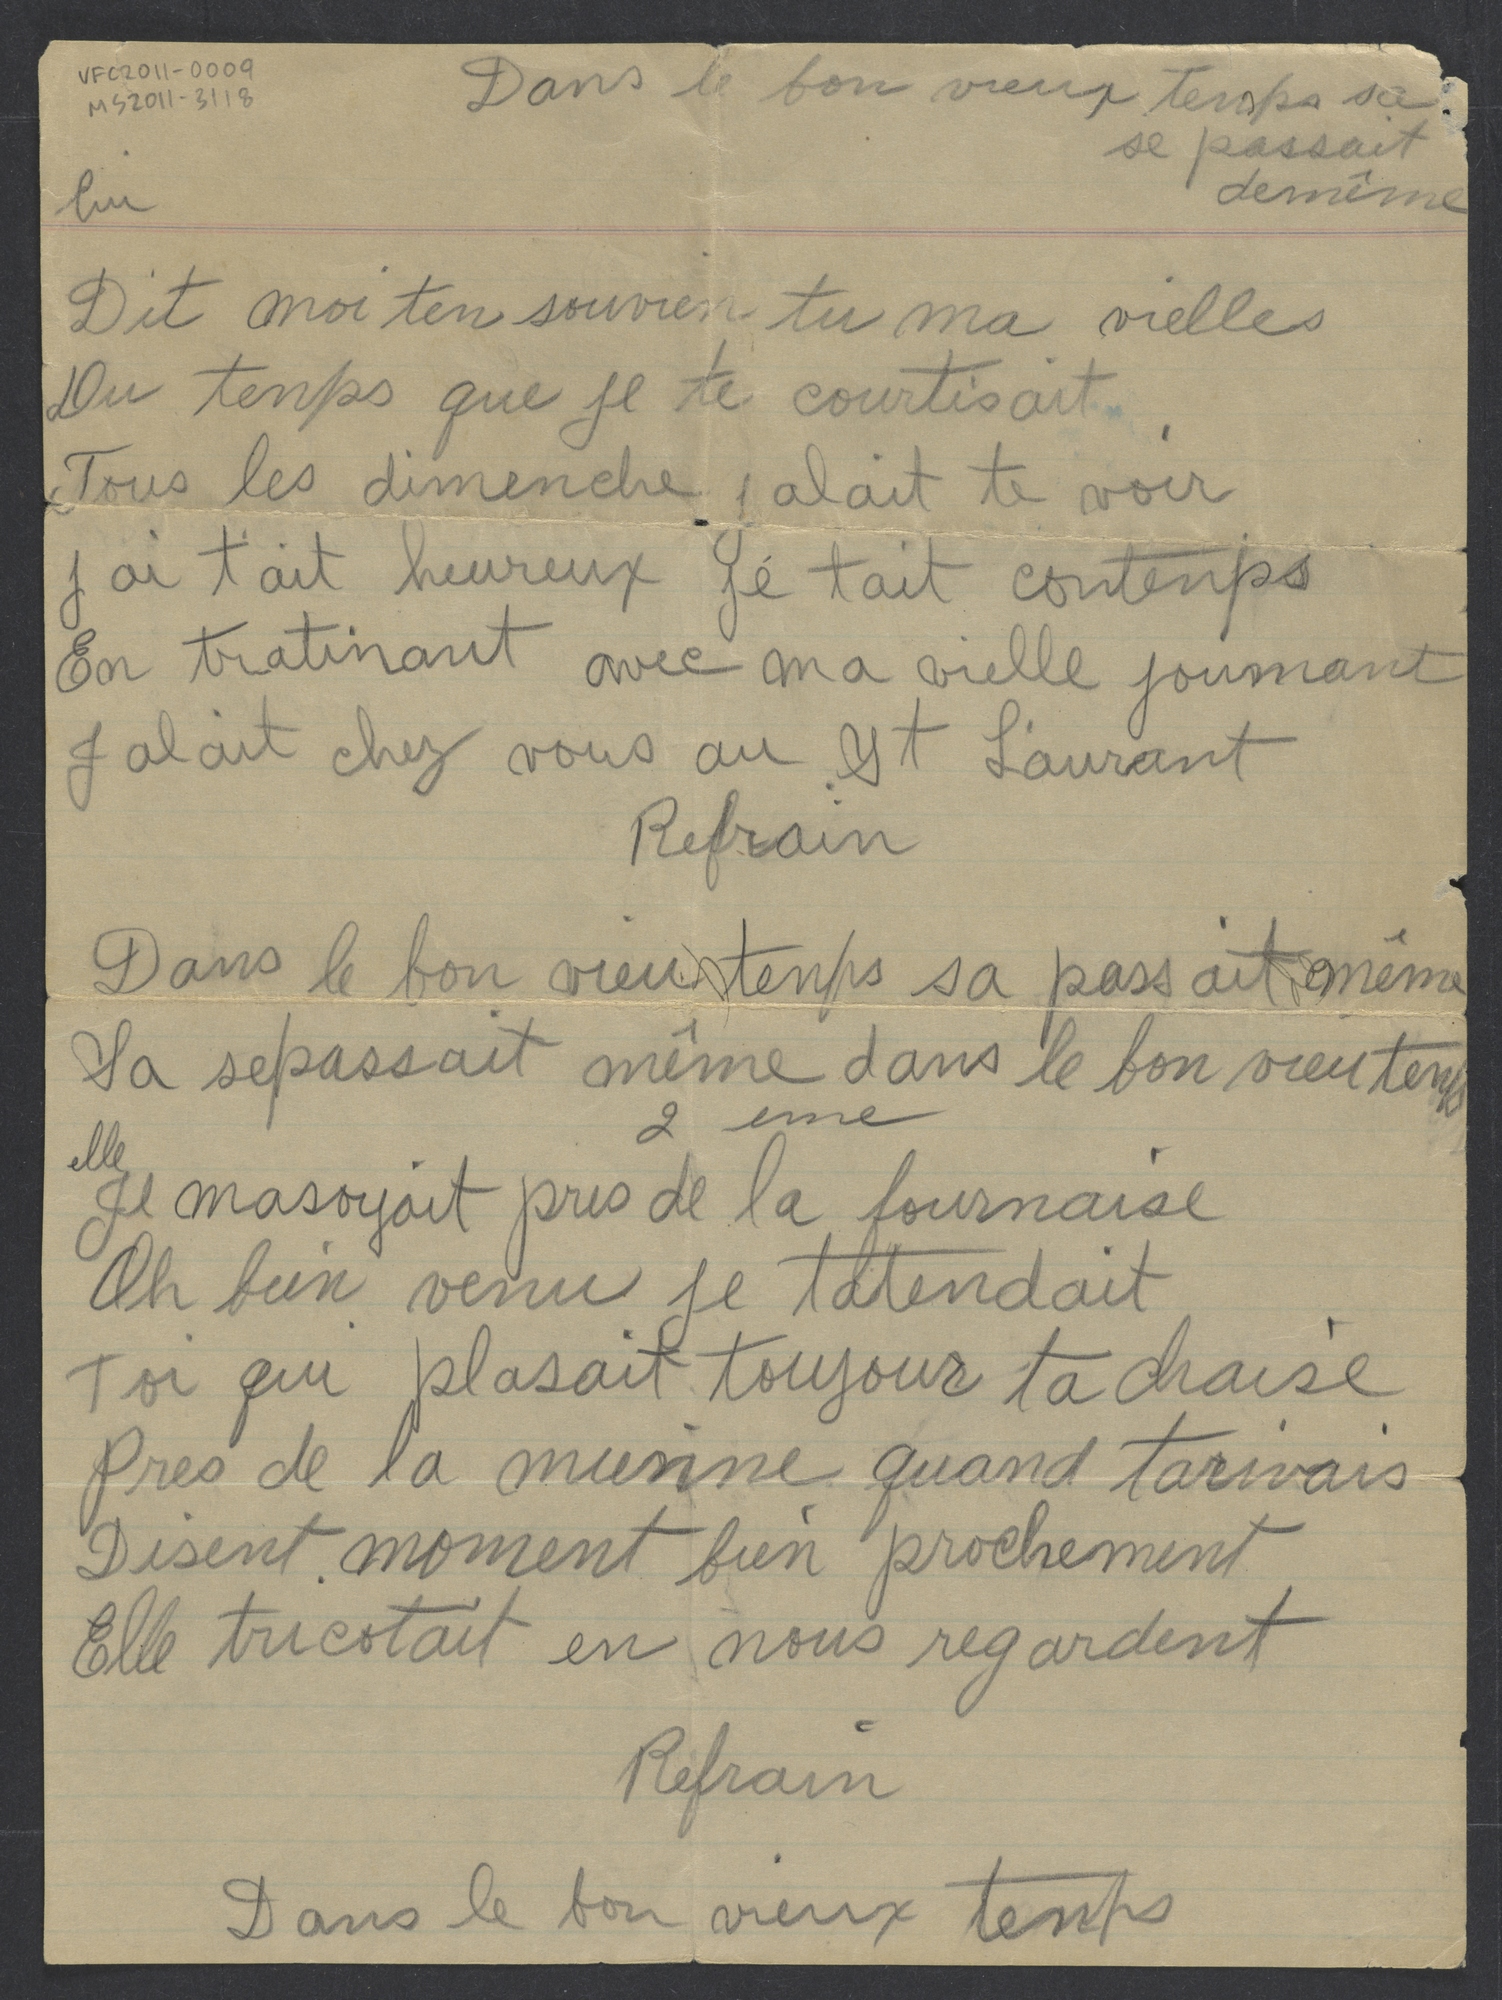 VFC2011-0009
MS2011-3118
Dans le bon vieux temps sa
se passait
demême
lui
Dit moi ten souvien tu ma vielles
Du temps que je te courtisait
Tous les dimenche j alait te voir
j ai t'ait heureux Jé tait contemps
En tratinant avec ma vielle joumant
J alait chez vous au St Laurant
Refrain
Dans le bon vieu temps sa passait même
Sa sepassait même dans le bon vieu temps
2 eme
elle
Je masoyait pres de la fournaise
Oh bien venu je tatendait
Toi qui plasait toujour ta chaise
Pres de la mienne quand tarivais
Disent moment bien prochement
Elle tricotait en nous regardent
Refrain
Dans le bon vieux temps